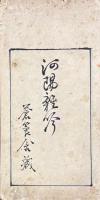 河陽雜吟
蒼筤舍藏